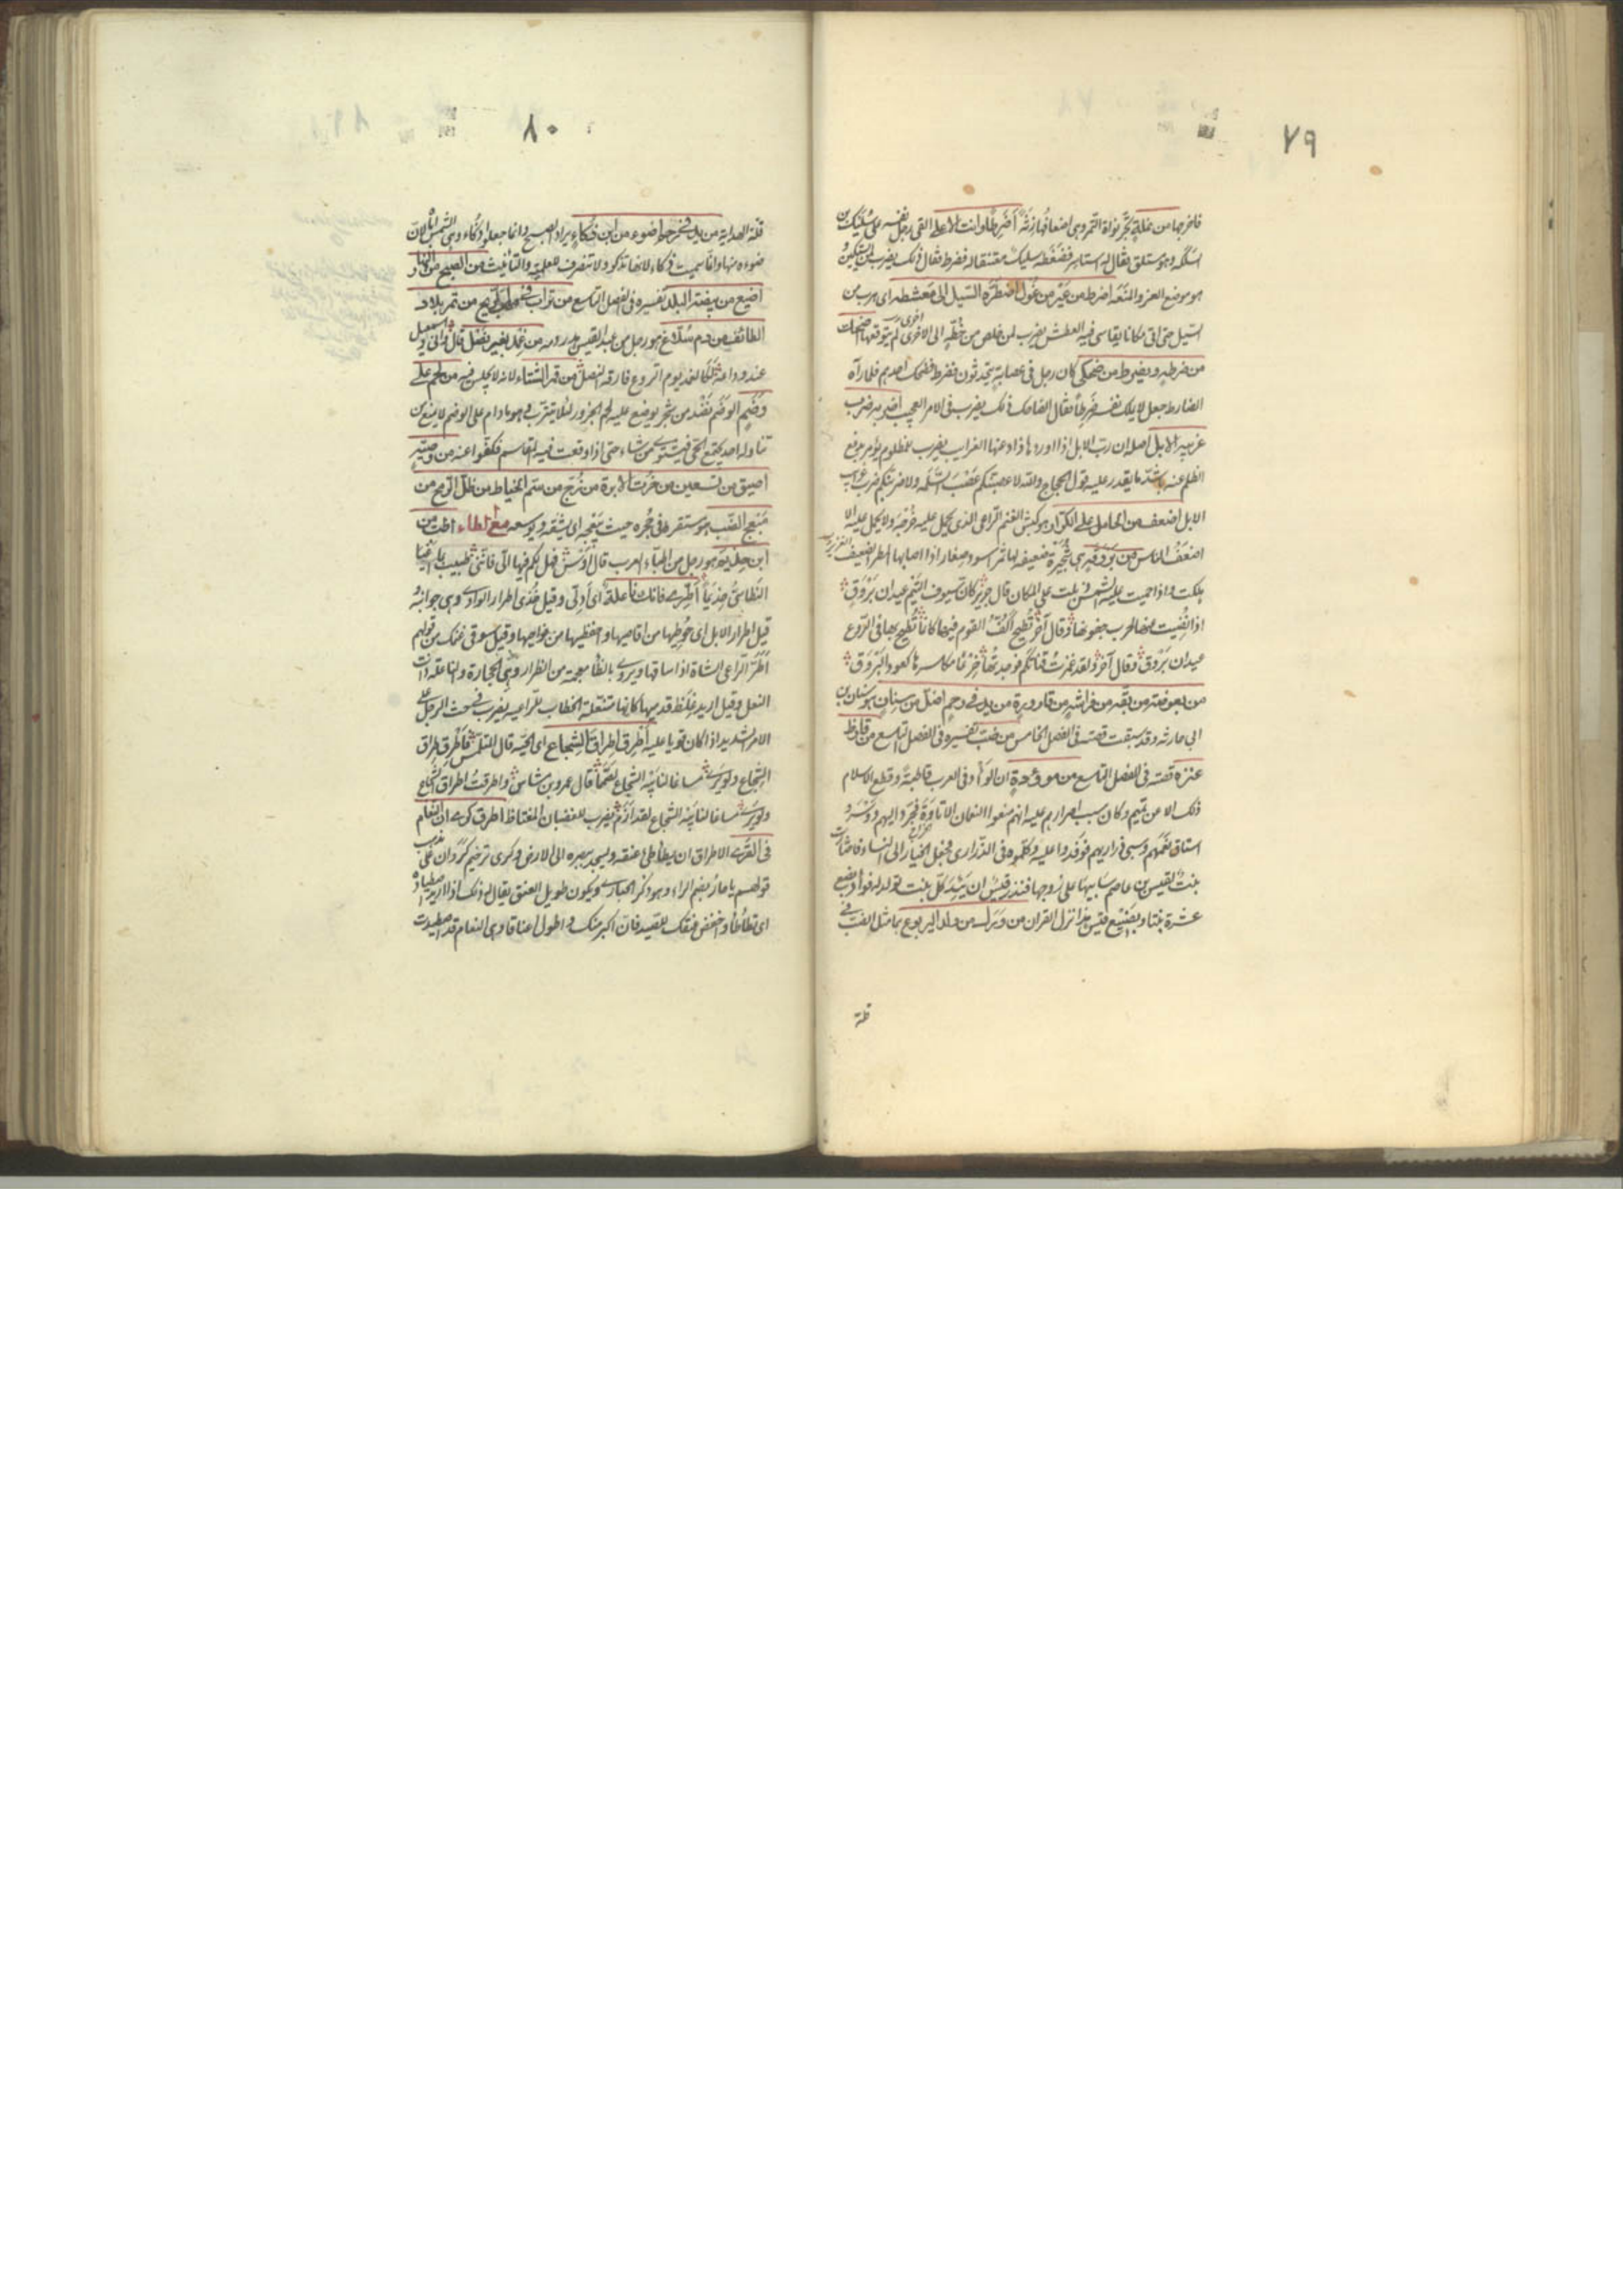 ٧٩
فاخرجها من مخلاته تجر نواة التمر وهى
السلكه وهو مستلق فقال له استاسر فضغطه سليك ضغطة فضرط فقال ذلك يضرب
هو موضع العز والمنعة اضرط من عير من غول اضطره السيل الى معطشه اى هرب من
السيل حتى اتى مكانا يقاسى فيه العطش يضرب لمن خلص من خطة الى الاخرى لم يتوقعها
من ضرطه ويضرط من ضحكى كان رجل فى عصابة يتحدثون فضرط فضحك احدهم فلما رآه
الضارط جعل لا يملك نفسه ضرطا فقال الضاحك ذلك يضرب فى الامر العجيب اضربه ضرب
غريبة الابل اصله ان رب الابل اذا اوردها ذاد عنها الغرايب يضرب لمظلوم يؤمر بدفع
الظلم عنه باشد ما يقدر عليه قول الحجاج والله لاعصبنكم عصب السلمة ولاضربنكم ضرب غرايب
الابل اضعف من الحامل على الكراز هو كبش الغنم الراعى الذى يحمل عليه خرجه ولا يحمل عليه الا
اضعف الناس من بروقة هى شجيرة ضعيفة لها ثمر اسود صغار اذا اصابها المطر
هلكت واذا حميت عليها الشمس ذبلت على المكان قال جرير كان سيوف التيم عيدان بروق
اذا نضيت عنها لحرب جفونها وقال آخر تطيح اكف القوم فيها كانما تطيح بها فى الروع
عيدان بروق وقال آخر ولقد غمزت قناتكم فوجدتها خرعا مكاسرها كعود البروق
من بعوضة من بقة من فراشة من قارورة من يد فى رحم اضل من سنان هو سنان بن
ابى حارثه وقد سبقت قصته فى الفصل الخامس من ضب تفسيره فى الفصل التاسع من قارظ
عنزة قصته فى الفصل التاسع من موؤدة ان الوأد فى العرب قاطبة وقطع الاسلام
ذلك الا عن تميم وكان سبب اصرارهم عليه انهم منعوا النعمان الاتاوة فجرد اليهم دوسر
استاق نعمهم وسبى ذراريهم فوفدوا عليه وكلموه فى الذرارى فجعل الخيار الى النساء فاختارت
بنت لقيس بن عاصم سابيها على زوجها فنذر قيس ان يئد كل بنت تولد له فوأد بضع
عشرة بنتا وبصنيع قيس هذا نزل القران من ورل من ولد اليربوع هما مثل الضب فى
قلة
٨٠
قلة الهداية من يد فى رحم اضوء من ابن ذكاء يراد الصبح وانما جعلوا ذكاء وهى الشمس لان
ضوءه منها وانما سميت ذكاء لانها تذكو ولا تنصرف للعلمية والتأنيث من الصبح من النار
اضيع من بيضة البلد تفسيره فى الفصل التاسع من تراب فى مهب الريح من تمر بلاد
الطائف من دم سلاغ هو رجل من عبد القيس هدر دمه من غمد بغير نصل قال
عند وداعه لغد يوم الروع فارقه النصل من قمر الشتاء لانه لا يجلس فيه من لحم على
وضم الوضم نضد من شجر يوضع عليه لحم الجزور لئلا يتترب فهو ما دام على الوضم لا يمنع من
تناوله احد يجتمع الحى فيشتوى من شاء حتى اذا وقعت فيه المقاسم فكفوا عنه من وصية
اضيق من تسعين من خرت الابرة من زج من سم الخياط من ظل الرمح من
مبعج الضب هو مستقره فى جحره حيث يبعجه اى يشقه ويوسعه مع الطاء اطب من
ابن حذيم هو رجل من اطباء العرب قال اوس فهل لكم فيها الى فاننى طبيب بما اعيا
النطاسى حذيما اطرى فانك ناعلة اى ادلى وقيل خذى اطرار الوادى وهى جوانبه
قيل اطرار الابل اى حوطيها من اقاصيها واحفظيها من نواحيها وقيل سوقى غنمك من قولهم
اطر الراعى الشاة اذا ساقها ويروى بالظاء معجمة من الظرار وهى الحجارة والناعلة ذات
النعل وقيل اريد غلظ قدميها كانها متنعلة الخطاب للراعية يضرب فى حث الرجل على
الامر الشديد اذا كان قويا عليه اطرق اطراق الشجاع اى الحية قال المتلمس فاطرق اطراق
الشجاع ولو يرى مساغا لنابيه الشجاع لصمما قال عمرو بن شاس واطرقت اطراق الشجاع
ولو يرى مساغا لنابيه الشجاع لقد ازم يضرب للغضبان المغتاظ اطرق كرى ان النعام
فى القرى الاطراق ان يطأطئ عنقه ويسجد ببصره الى الارض وكرى ترخيم كروان على
قولهم يا حار بضم الراء وهو ذكر الحبارى ويكون طويل العنق يقال له ذلك اذا اريد اصطياده
اى تطأطأ واخفض عنقك للصيد فان اكبر منك واطول اعناقا وهى النعام قد اصطيدت